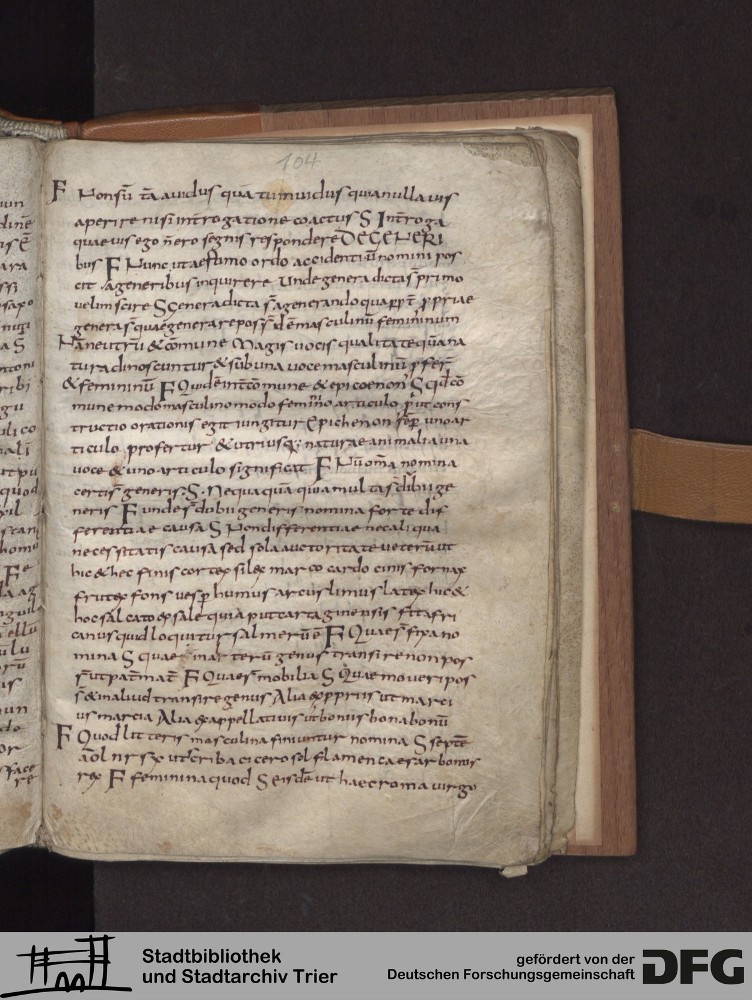 104
F Non sū tā avidus quā tu invidus quia nulla vis
aperire nisi introgatione coactus S Intrroga
quae vis ego n̄ ero segnis respondere DE GENERI
bus F Nunc ut aestimo ordo accidentiū nomini pos
cit a generibus inquirere Unde genera dicta s̄ primo
velim scire S Genera dicta s̄ a generando quapp̄t p̄priae
genera s̄ quae generare poss̄ id ē masculinū femininum
Nā neutrū & cōmune Magis vocis qualitate quā na
tura dinoscuntur & sub una voce masculinū p̄fer̄
& femininū F Quid ē int̄ cōmune & epicoenon S qd̄ cō
mune modo masculino modo feminino articulo p̄ut cons
tructio orationis egit iungitur Epichenon sēp uno ar
ticulo profertur & utriusq; naturae animalia una
voce & uno articulo significat F Nū om̄a nomina
certis generis s̄ S Nequaquā quia multa s̄ dubii ge
neris F unde s̄ dubii generis nomina forte dif
ferentiae causa S Non differentiae nec aliqua
necessitatis causa sed sola auctoritate veterū ut
hic & hec finis cortex silex margo cardo cinis fornax
frutex fons vesp humus arcus limus latex hic &
hoc sal cato ex sale qui aput cartaginensis fit t afri
canus quid loquitur sal merū ē F Quae s̄ fixa no
mina S quae in alterū genus transire non pos
s̄ ut pat̄ mat̄ F Quae s̄ mobilia S Quae moveri pos
s̄ & in aliud transire genus Alia ex propriis ut marci
us marcia Alia ex appellativis ut bonus bona bonū
F Quod litteris masculina finiuntur nomina S septē
a o l n r s x ut scriba cicero sol flamen caesar bonus
rex F feminina quod S eisdē ut haec roma virgo
Stadtbibliothek
und Stadtarchiv Trier
gefördert von der
Deutschen Forschungsgemeinschaft
DFG